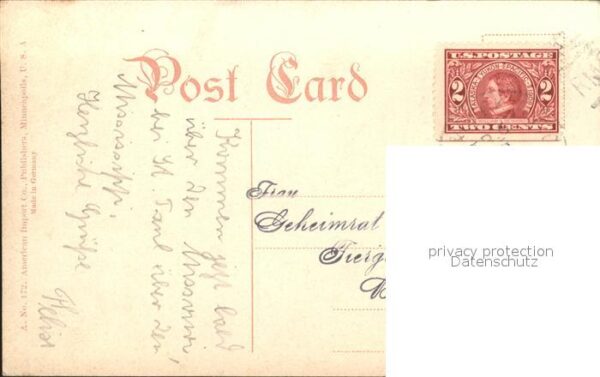 Post Card
A. No. 172. American Import Co., Publishers, Minneapolis, U. S. A
Made in Germany
U.S. POSTAGE
ALASKA-YUKON-PACIFIC 1909
2 2
TWO CENTS
Kommen jetzt bald
über den Missouri
bei St. Paul über den
Mississippi.
Herzliche Grüße
Frau
Geheimrat
Tierg
privacy protection
Datenschutz